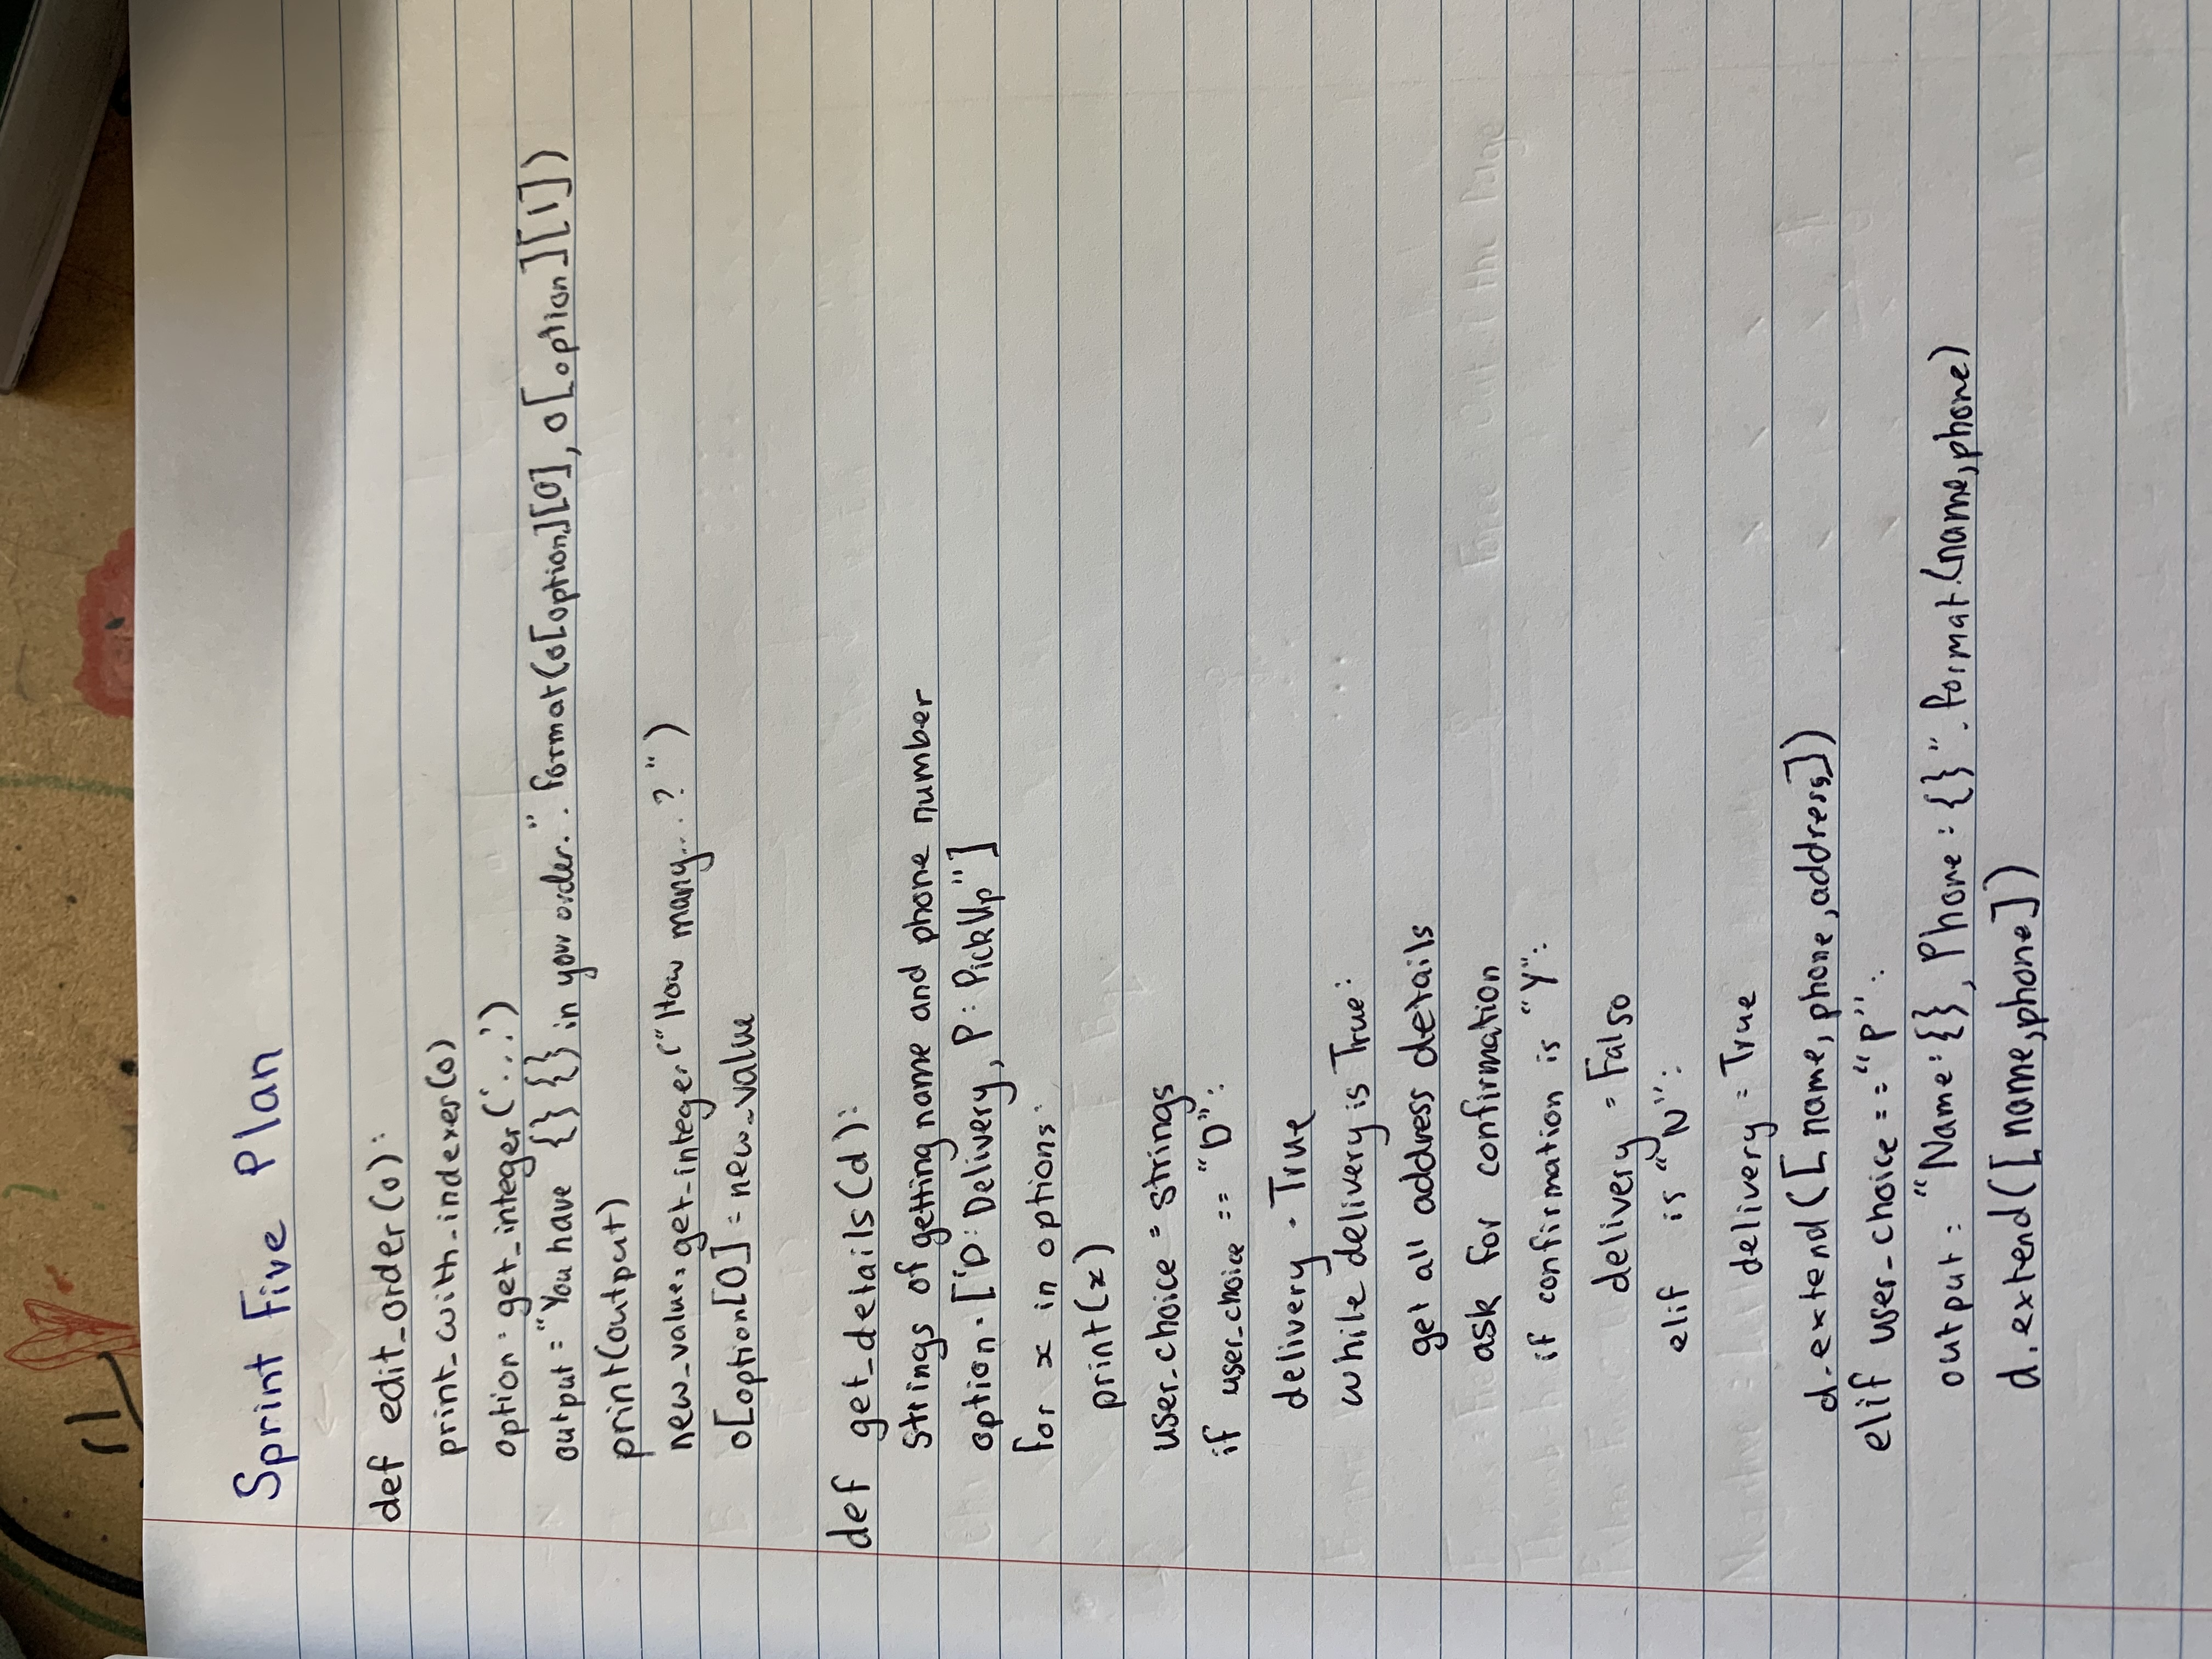 Sprint Five Plan
def edit_order(o):
print_with_indexes(o)
option = get_integer('...')
output = "You have {} {} in your order.". format(o[option][0], o[option][1])
print(output)
new_value = get_integer("How many...?")
o[option[0] = new_value
def get_details(d):
Strings of getting name and phone number
option = ["D: Delivery, P: PickUp"]
for x in options:
print(x)
user_choice = strings
if user_choice == "D":
delivery = True
while delivery is True:
get all address details
ask for confirmation
if confirmation is "Y":
delivery = Falso
elif is "N":
delivery = True
d.extend([name, phone, address])
elif user_choice == "P":
output = "Name: {}, Phone: {}". format.(name, phone)
d.extend([name, phone])